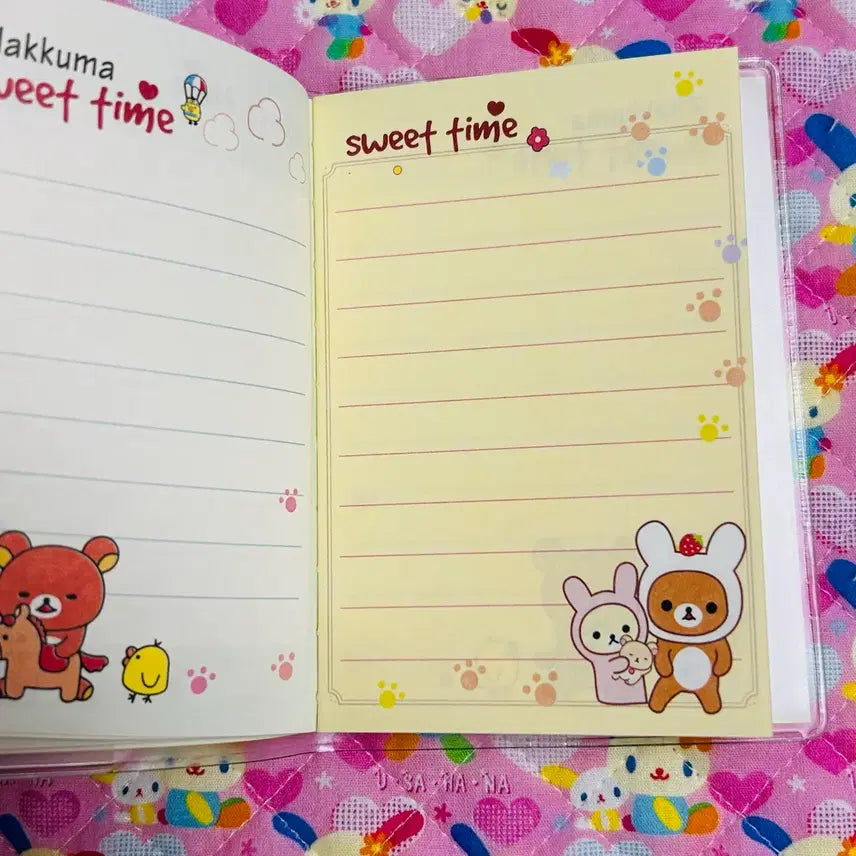 lakkuma
weet time
sweet time
U·SA·HA·NA